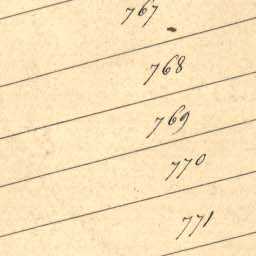 767
768
769
770
771